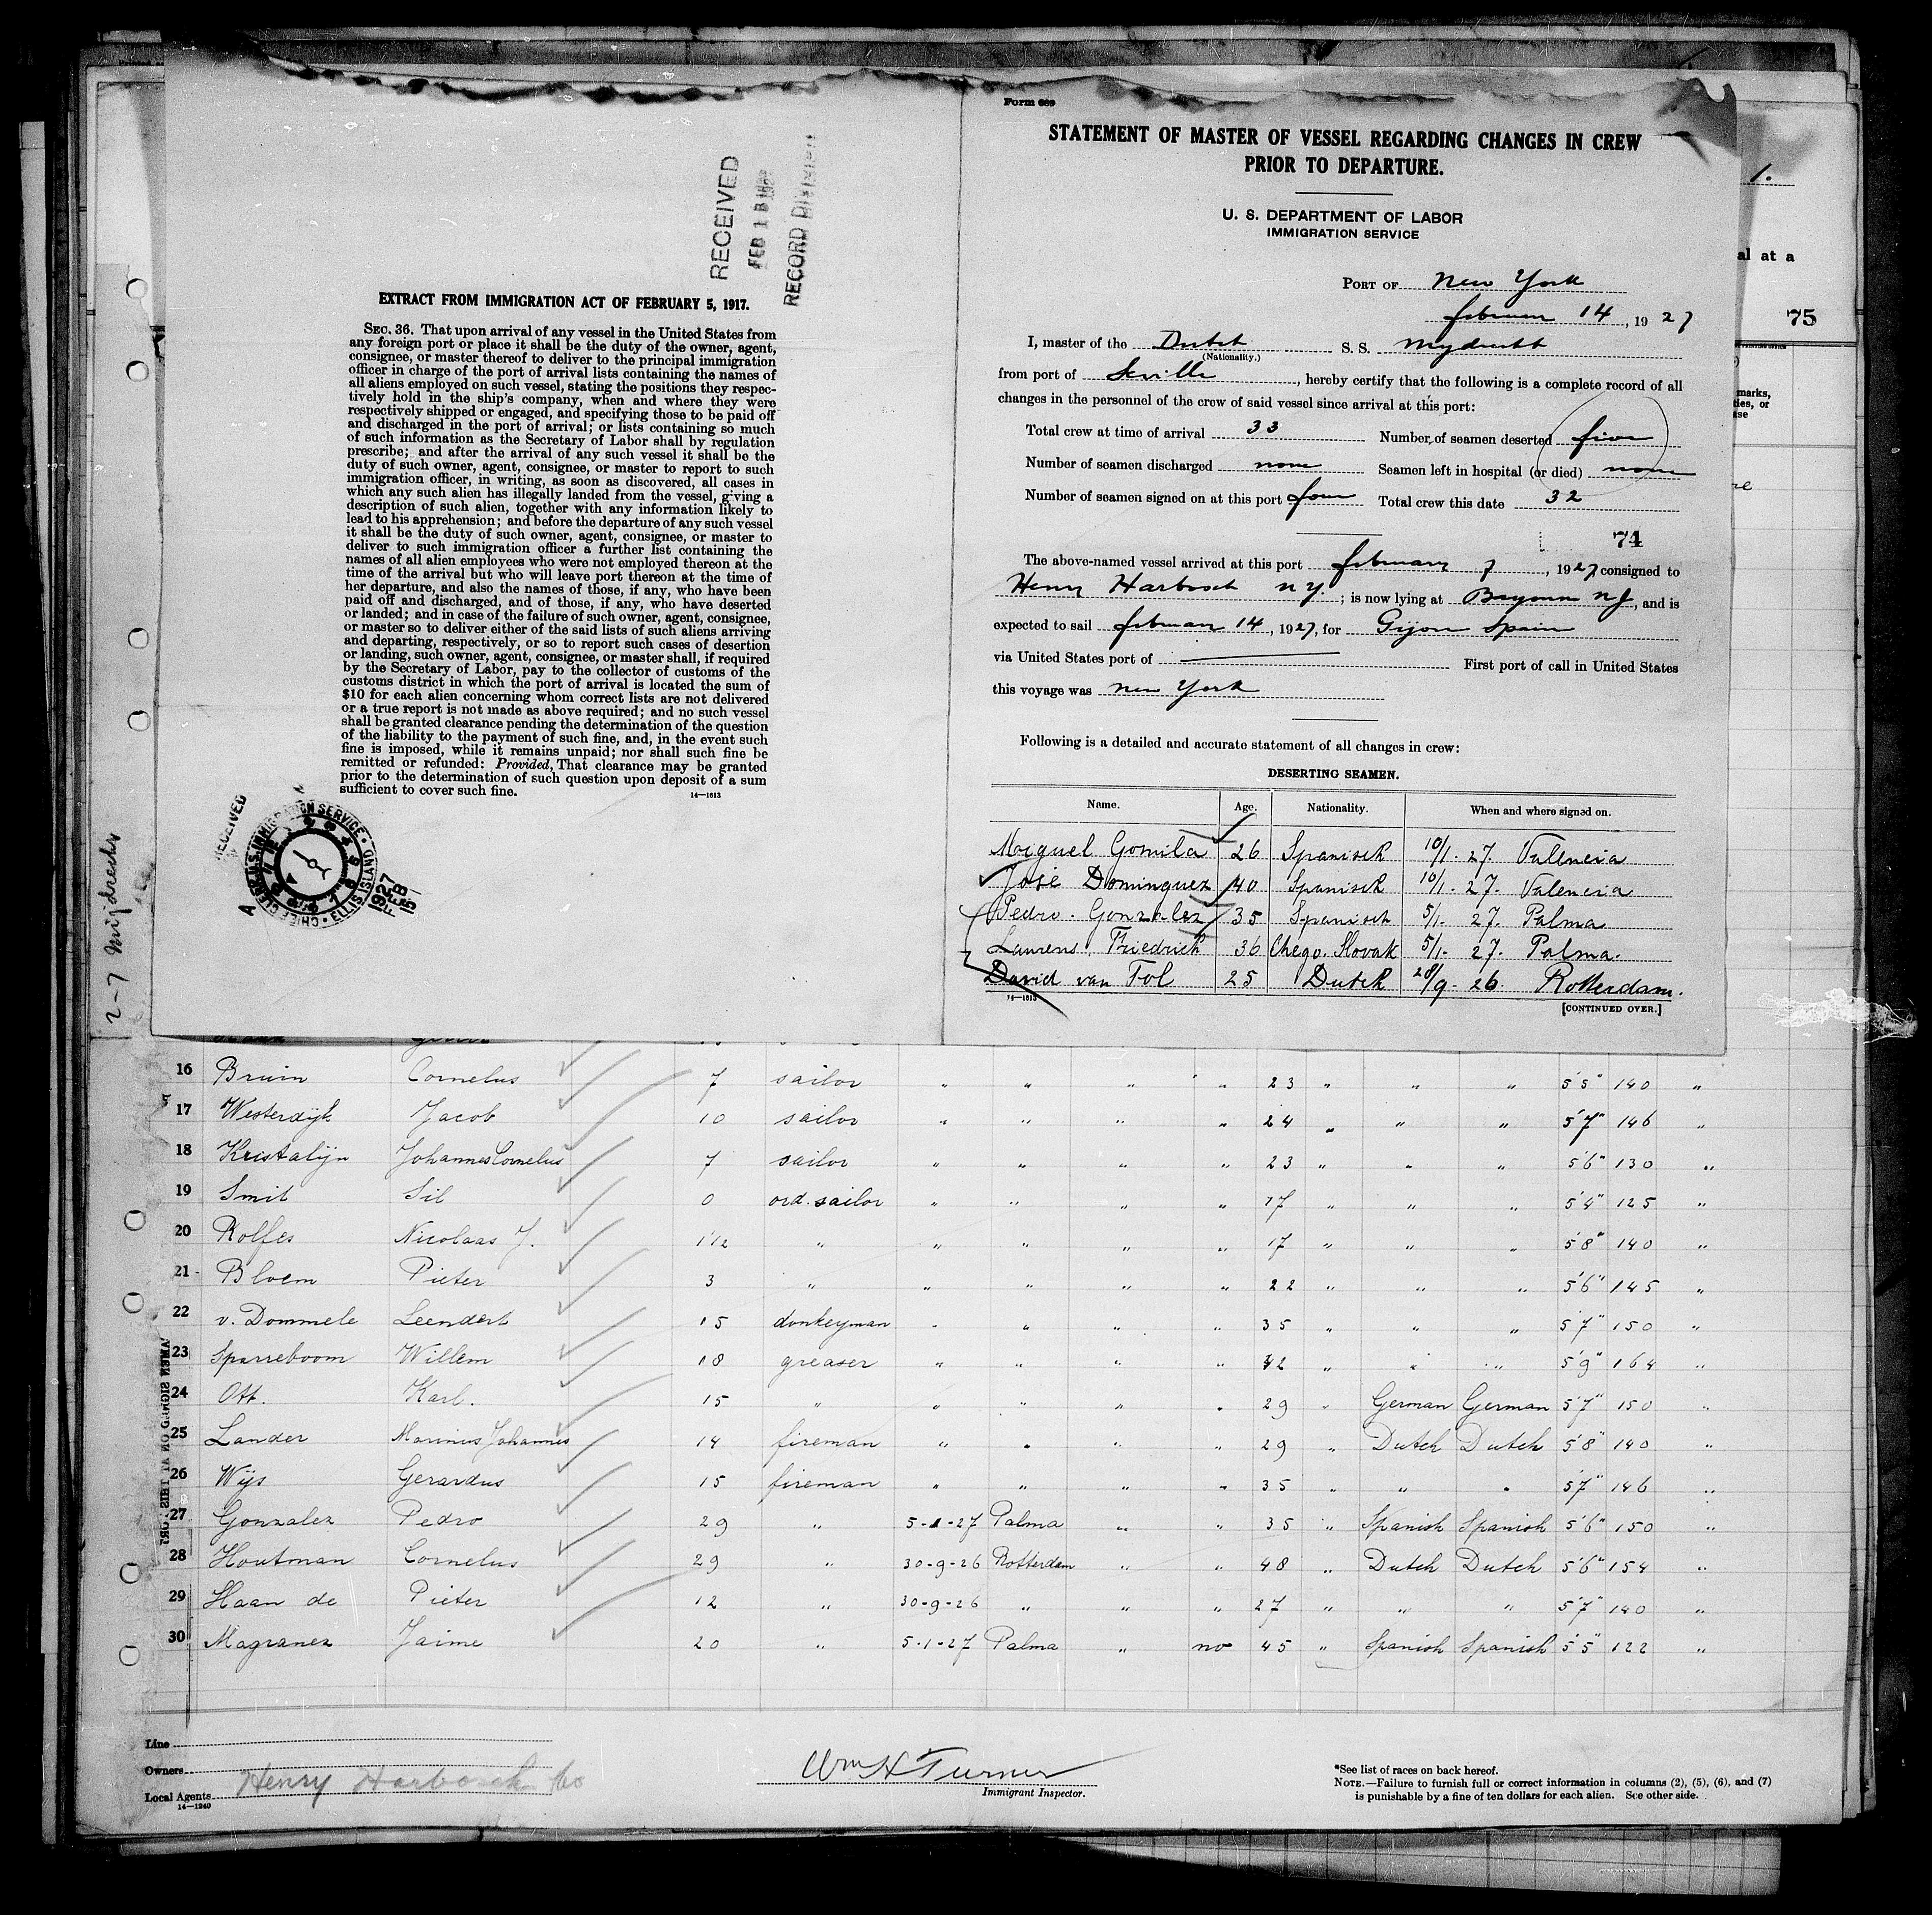 EXTRACT FROM IMMIGRATION ACT OF FEBRUARY 5, 1917.
SEC. 36. That upon arrival of any vessel in the United States from
any foreign port or place it shall be the duty of the owner, agent,
consignee, or master thereof to deliver to the principal immigration
officer in charge of the port of arrival lists containing the names of
all aliens employed on such vessel, stating the positions they respec-
tively hold in the ship's company, when and where they were
respectively shipped or engaged, and specifying those to be paid off
and discharged in the port of arrival; or lists containing so much
of such information as the Secretary of Labor shall by regulation
prescribe; and after the arrival of any such vessel it shall be the
duty of such owner, agent, consignee, or master to report to such
immigration officer, in writing, as soon as discovered, all cases in
which any such alien has illegally landed from the vessel, giving a
description of such alien, together with any information likely to
lead to his apprehension; and before the departure of any such vessel
it shall be the duty of such owner, agent, consignee, or master to
deliver to such immigration officer a further list containing the
names of all alien employees who were not employed thereon at the
time of the arrival but who will leave port thereon at the time of
her departure, and also the names of those, if any, who have been
paid off and discharged, and of those, if any, who have deserted
or landed; and in case of the failure of such owner, agent, consignee,
or master so to deliver either of the said lists of such aliens arriving
and departing, respectively, or so to report such cases of desertion
or landing, such owner, agent, consignee, or master shall, if required
by the Secretary of Labor, pay to the collector of customs of the
customs district in which the port of arrival is located the sum of
$10 for each alien concerning whom correct lists are not delivered
or a true report is not made as above required; and no such vessel
shall be granted clearance pending the determination of the question
of the liability to the payment of such fine, and, in the event such
fine is imposed, while it remains unpaid; nor shall such fine be
remitted or refunded: Provided, That clearance may be granted
prior to the determination of such question upon deposit of a sum
sufficient to cover such fine.
14—1613
RECEIVED
FEB 1
RECORD DIVISION
RECEIVED
CHIEF CLERK U.S. IMMIGRATION SERVICE · ELLIS ISLAND
1927
FEB
15
A
2-7 Mijdrecht
Form 689
STATEMENT OF MASTER OF VESSEL REGARDING CHANGES IN CREW
PRIOR TO DEPARTURE.
U. S. DEPARTMENT OF LABOR
IMMIGRATION SERVICE
PORT OF New York
februar 14, 1927
I, master of the Dutch S. S. Mydrecht
(Nationality.)
from port of Seville, hereby certify that the following is a complete record of all
changes in the personnel of the crew of said vessel since arrival at this port:
Total crew at time of arrival 33 Number of seamen deserted five
Number of seamen discharged none Seamen left in hospital (or died) none
Number of seamen signed on at this port four Total crew this date 32
74
The above-named vessel arrived at this port february 7, 1927, consigned to
Henry Harbosch N Y.; is now lying at Bayonne N J, and is
expected to sail februar 14, 1927, for Gijon Spain
via United States port of First port of call in United States
this voyage was New York
Following is a detailed and accurate statement of all changes in crew:
DESERTING SEAMEN.
Name. Age. Nationality. When and where signed on.
Miguel Gomila 26 Spanisch 10/1-27. Valencia
José Dominguez 40 Spanisch 10/1-27. Valencia
Pedro. Gonzalez 35 Spanisch 5/1-27. Palma
Laurens. Friedrich 36 Chego. Slovak 5/1-27. Palma.
David van Tol 25 Dutch 28/9-26. Rotterdam.
14—1613
[CONTINUED OVER.]
1.
al at a
75
marks,
ties, or
ase
16 Bruin Cornelus 7 sailor " " " " 23 " " " 5'5" 140 "
17 Westerdijk Jacob 10 sailor " " " " 24 " " " 5'7" 146 "
18 Kristalijn Johannes Cornelus 7 sailor " " " " 23 " " " 5'6" 130 "
19 Smit Sil 0 ord. sailor " " " " 17 " " " 5'4" 125 "
20 Rolfes Nicolaas J. 1 1/2 " " " " " 17 " " " 5'8" 140 "
21 Bloem Pieter 3 " " " " " 22 " " " 5'6" 145 "
22 v. Dommele Leendert 15 donkeyman " " " " 35 " " " 5'7" 150 "
23 Sparreboom Willem 18 greaser " " " " 42 " " " 5'9" 164 "
24 Ott. Karl. 15 " " " " " 29 " German German 5'7" 150 "
25 Lander Marinus Johannes 14 fireman " " " " 29 " Dutch Dutch 5'8" 140 "
26 Wijs Gerardus 15 fireman " " " " 35 " " " 5'7" 146 "
27 Gonzalez Pedro 29 " 5-1-27 Palma " " 35 " Spanish Spanish 5'6" 150 "
28 Houtman Cornelus 29 " 30-9-26 Rotterdam " " 48 " Dutch Dutch 5'6" 154 "
29 Haan de Pieter 12 " 30-9-26 " " " 27 " " " 5'7" 140 "
30 Magraner Jaime 20 " 5-1-27 Palma " no 45 " Spanish Spanish 5'5" 122 "
Line
Owners
Local Agents Henry Harbosch Co
14—1240
Wm H Turner
Immigrant Inspector.
*See list of races on back hereof.
NOTE.—Failure to furnish full or correct information in columns (2), (5), (6), and (7)
is punishable by a fine of ten dollars for each alien. See other side.